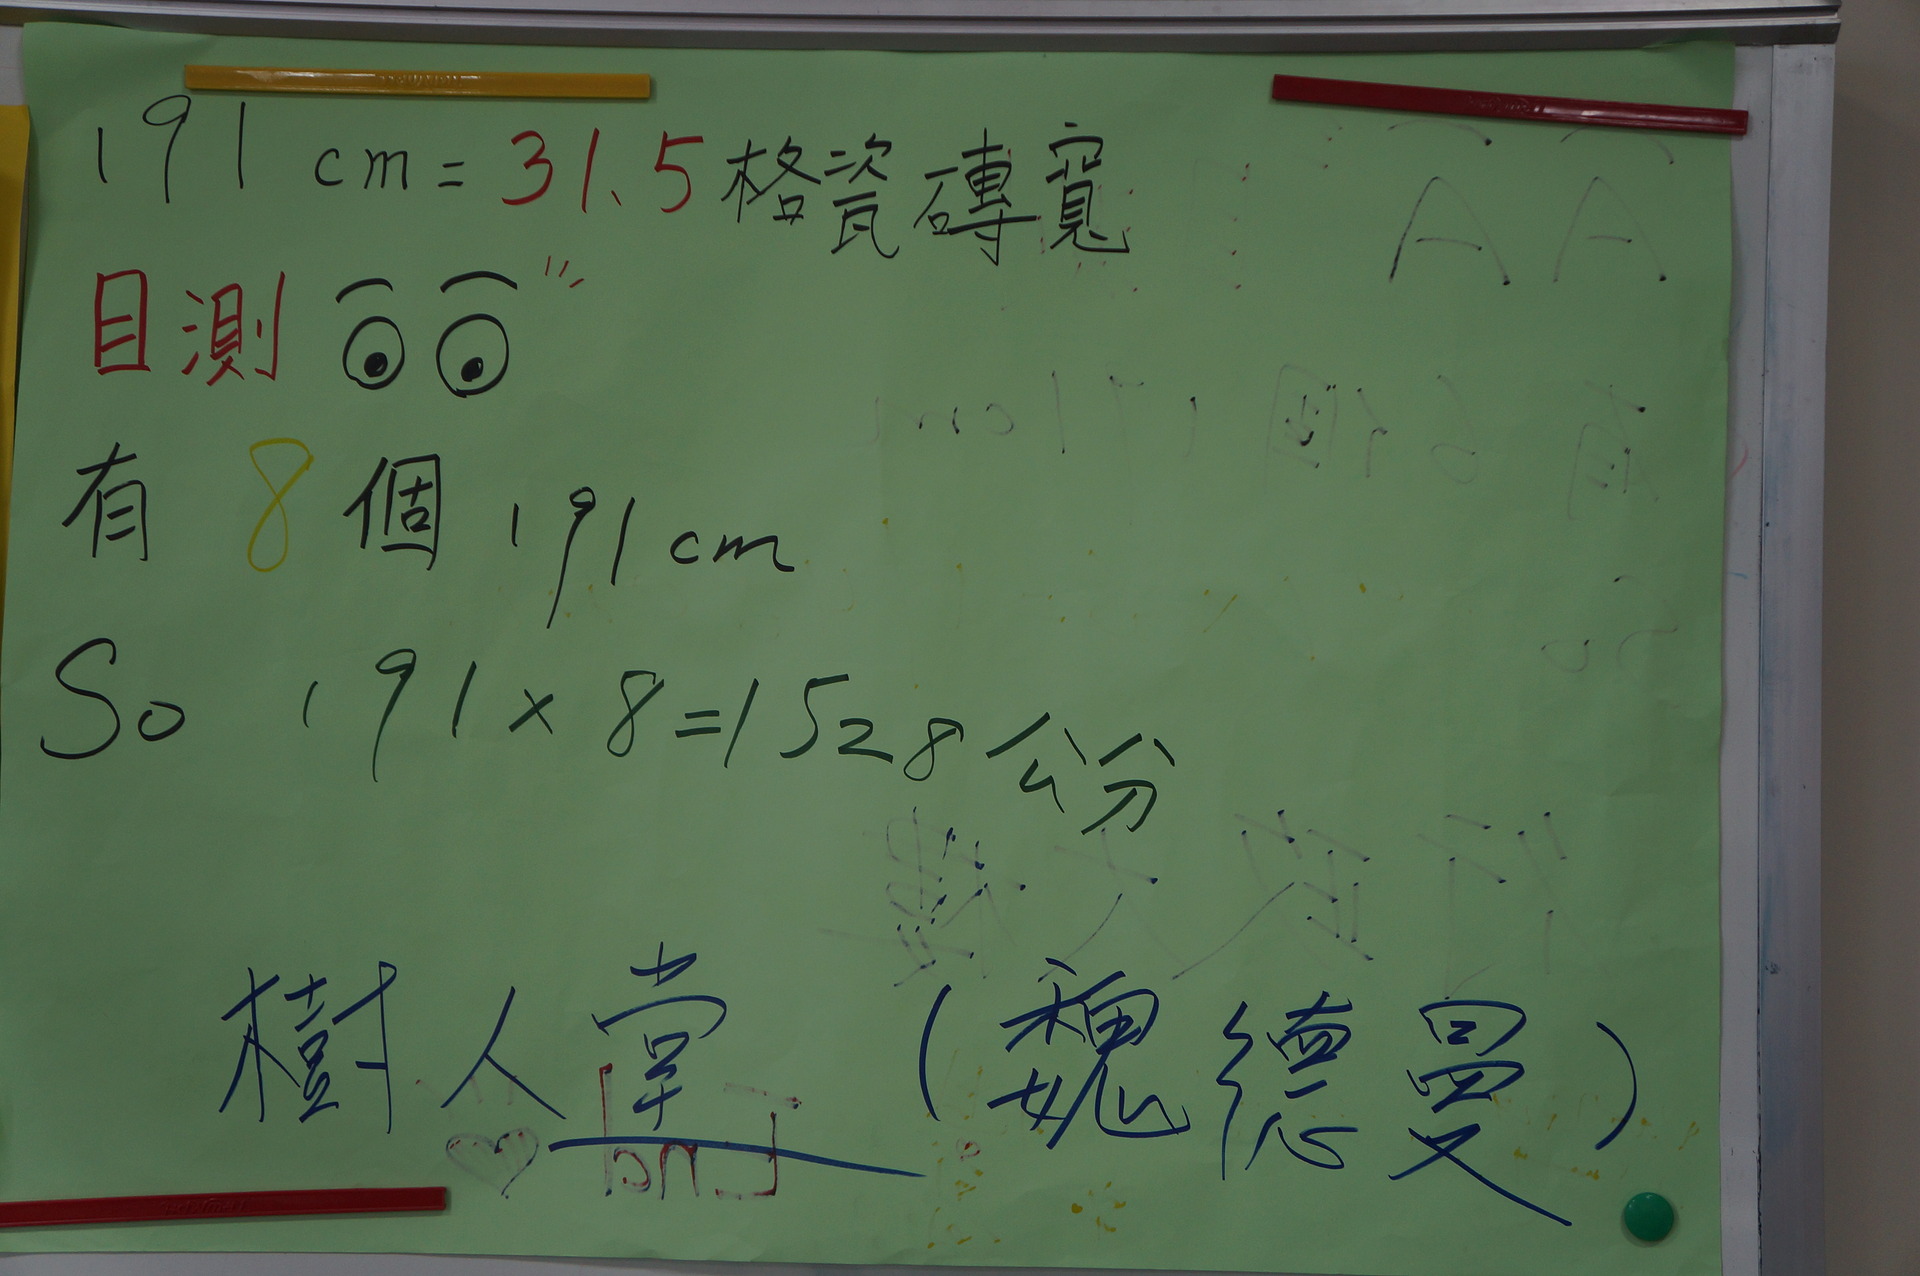 191 cm = 31.5格瓷磚寬
目測
有 8 個 191 cm
So 191 × 8 = 1528 公分
樹人堂 (魏德曼)
End